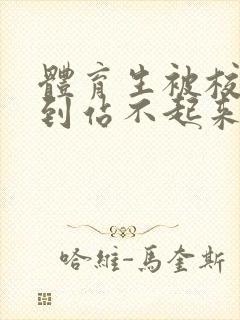 體育生被
到佔不起來
哈維-馬奎斯